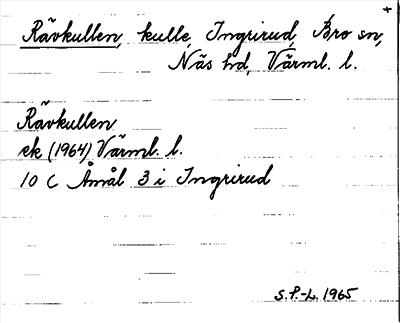 +
Rävkullen, kulle, Ingrirud, Bro sn,
Näs hd, Värml. l.
Rävkullen
ek (1964) Värml. l.
10 C Åmål 3 i Ingrirud
S.P.-L. 1965